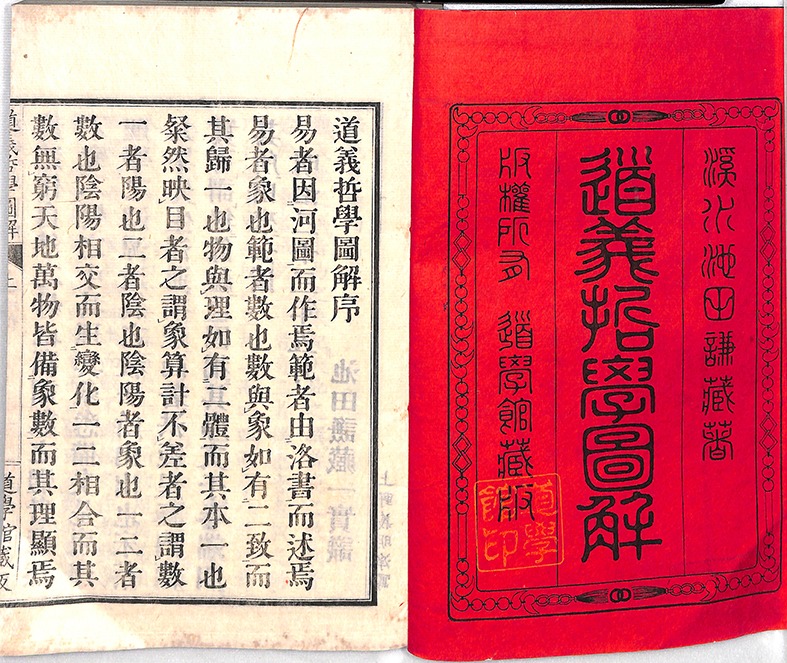 溪水池田謙藏著
道義哲學圖解
版權所有 道學館藏版
道學館印
道義哲學圖解序
易者因河圖而作焉範者由洛書而述焉
易者象也範者數也數與象如有二致而
其歸一也物與理如有二體而其本一也
粲然映目者之謂象算計不差者之謂數
一者陽也二者陰也陰陽者象也一二者
數也陰陽相交而生變化一二相合而其
數無窮天地萬物皆備象數而其理顯焉
道義哲學圖解 上 道學館藏版